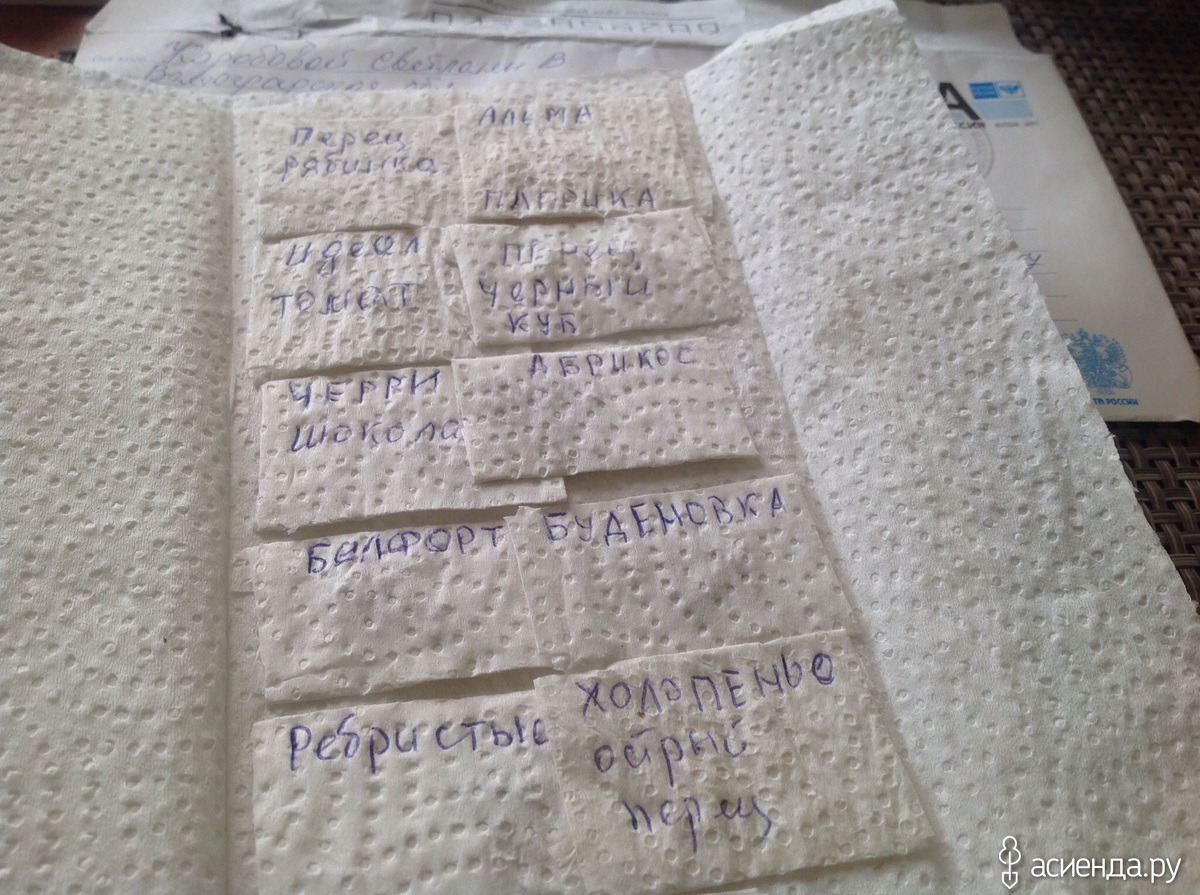 Светлане В
Перец
рябинка
АЛЬМА
ПАПРИКА
идеал
томат
ПЕРЕЦ
ЧЕРНЫЙ
КУБ
ЧЕРРИ
шокола
АБРИКОС
БЕЛФОРТ
БУДЕНОВКА
Ребристые
ХОЛОПЕНЬО
острый
перец
ТА РОССИИ
асиенда.ру